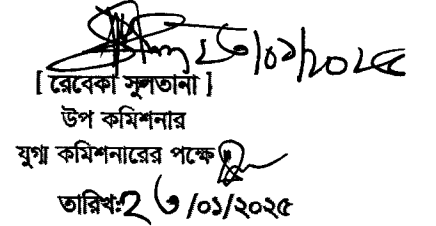 ২৬/০১/২০২৫
[ রেবেকা সুলতানা ]
উপ কমিশনার
যুগ্ম কমিশনারের পক্ষে
তারিখ:২৬/০১/২০২৫